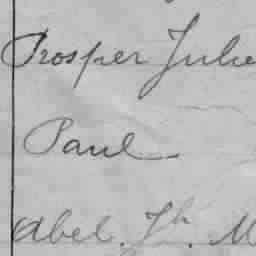 Prosper Julie
Paul
Abel. Th. M